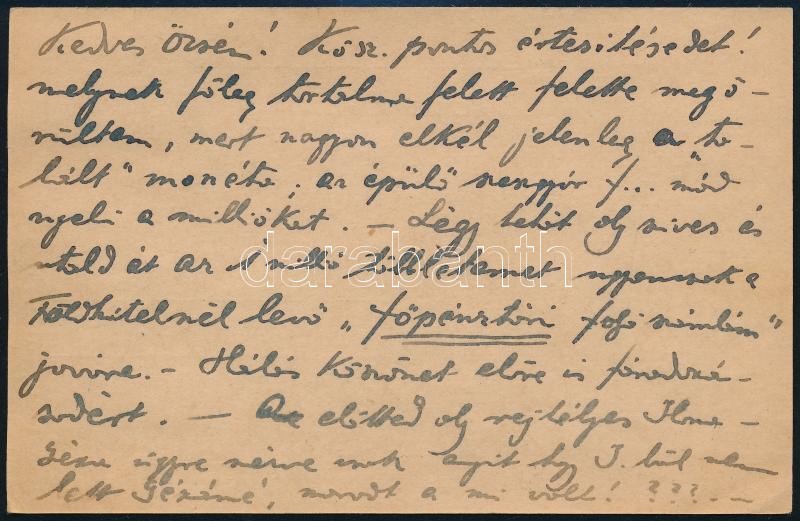 Kedves Öcsém! Kösz. pontos értesitésedet!
melynek főleg tartalma felett felette megö-
rültem, mert nagyon elkél jelenleg a "ta-
lált" monéta, az épülő f... mód
nyeli a milliókat. - Légy tehát oly szives és
utald át az 1 millió ugyancsak a
Földhitelnél levő "főpénztári folyó számlám"
javára. - Hálás köszönet előre is fáradozá-
sodért. - Az előtted oly rejtélyes Ilona -
Géza ügyre nézve csak annyit hogy I. ból nem
lett Gézáné, maradt a mi volt! ???. -
darabanth